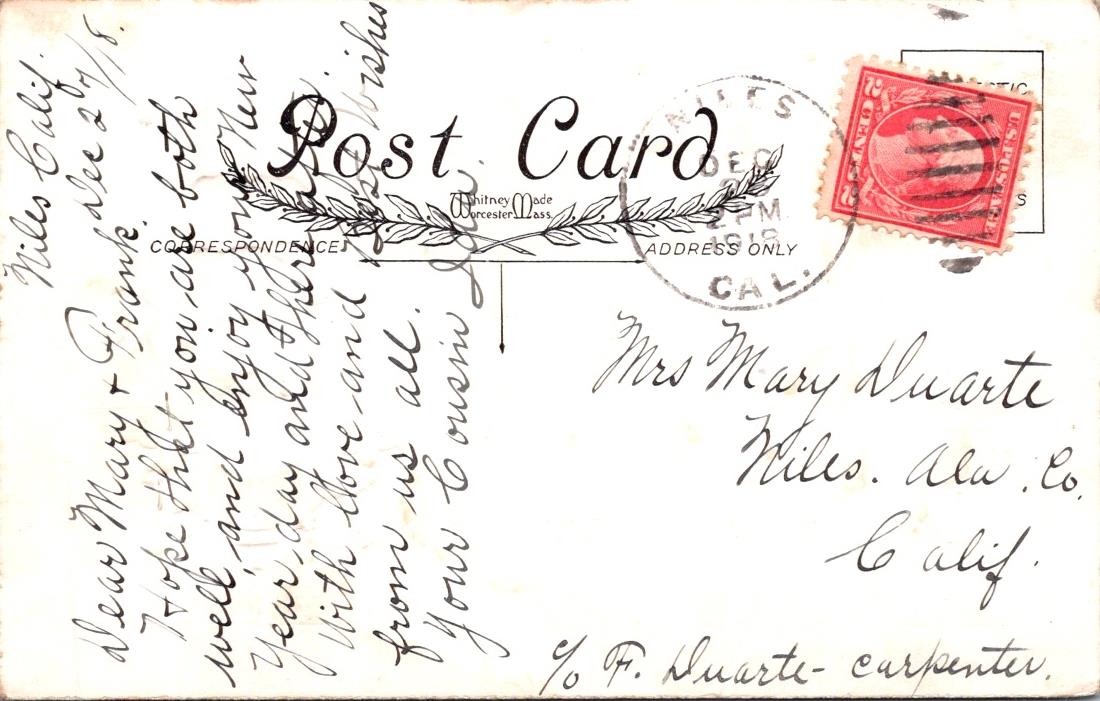 Niles Calif.
Dec 27/18.
Dear Mary + Frank.
Hope that you are both
well, and enjoy your New
Year, day and there
With love and Best Wishes
from us all.
Your Cousin
Post Card
Whitney Made
Worcester Mass.
CORRESPONDENCE
ADDRESS ONLY
NILES
DEC
2 PM
1918
CAL.
U.S. POSTAGE
2 CENTS 2
Mrs Mary Duarte
Niles. Ala. Co.
Calif.
c/o F. Duarte - carpenter.